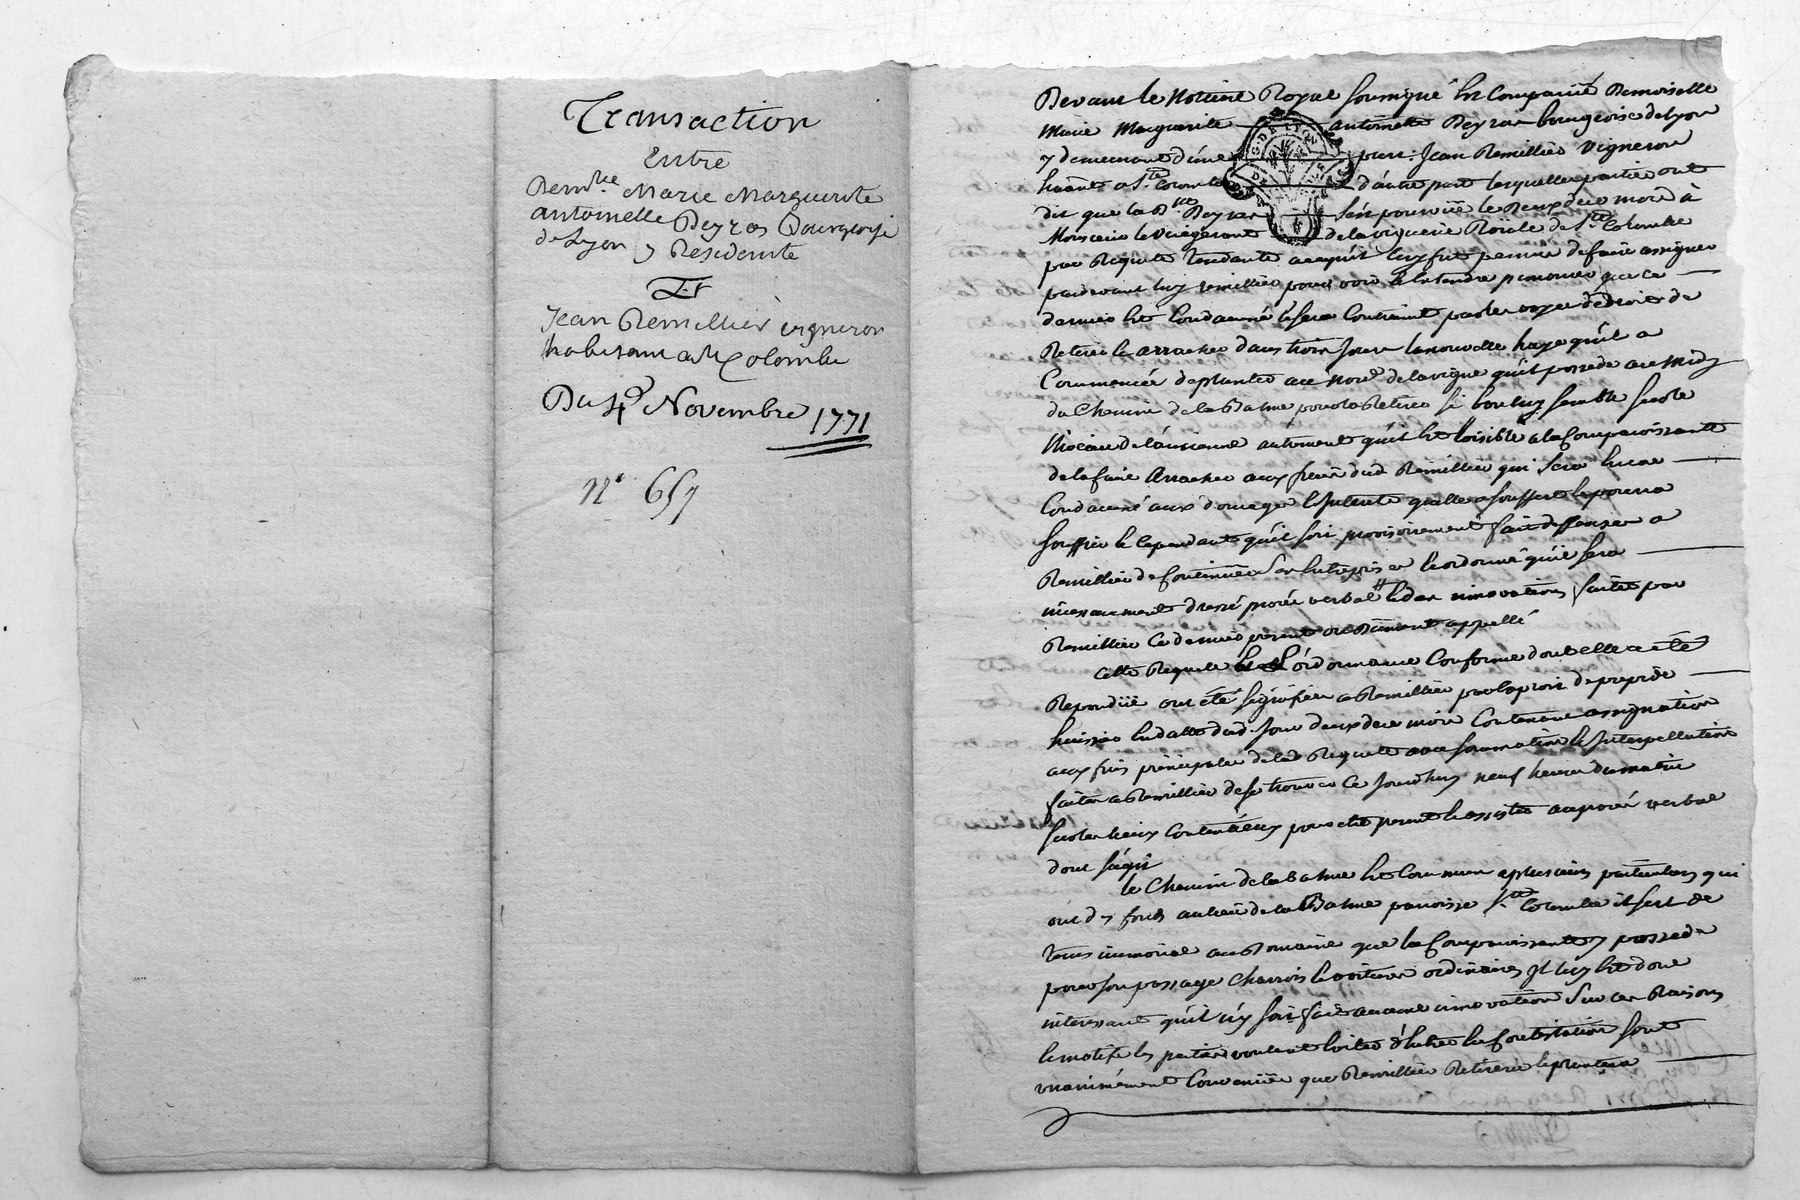 Transaction
Entre
Demlle Marie Marguerite
antoinette Deyras Bourgeoise
de Lyon y Residante
Et
Jean Remillier vigneron
habitant a Ste Colombe
Du 4e Novembre 1771
n° 657
Devant le Notaire Royal soussigné est Comparüe Demoiselle
Marie Marguerite antoinette Deyras bourgeoise de Lyon
y demeurant d'une part: Jean Remillier vigneron
hâbant a Ste Colombe d'autre part lesquelles parties ont
dit que la Dlle Deyras s'est pourvüe le deux de ce mois à
Monsieur le de la viguerie Roïale de Ste Colombe
par Requete tendante a ce qu'il luy fut permis de faire assigner
pardevant luy Remillier pour voir et entendre prononcer que ce
dernier est Condamné et sera Contraint par les voyes de droit de
Retirer et arracher dans trois jours la nouvelle haye qu'il a
Commencée de planter au Nord de la vigne qu'il possede au midy
du Chemin de la Balme pour la Retirer si bon luy semble sur le
Niveau de l'ancienne autrement qu'il est loisible a la Comparoissante
de la faire arracher aux fraix dud Remillier qui sera encore
Condamné aux d'omages Interets qu'elle a souffert et pourra
souffrir et Cependant qu'il soit provisoirement fait deffenses a
Remillier de Continuer ses Entreprises et ordonné qu'il sera
incessamment dressé procés verbal des innovations faites par
Remillier Ce dernier present ou düement appellé
Cette Requete et L'ordonnance Conforme dont elle a été
Repondüe ont été signifiées a Remillier par exploit de
huissier en datte dud. jour deux de ce mois Contenant assignation
aux fins principales de lad Requete avec sommation et Interpellation
faites a Remillier de se trouver Ce jourd'huy neuf heures du matin
sur les lieux Contentieux pour etre present et assister au procés verbal
dont s'agit
le Chemin de la Balme est Commun a plusieurs particuliers qui
ont des fonds au lieu de la Balme paroisse Ste Colombe il sert de
tems immorial au Domaine que la Comparoissante y possede
pour son passage Charrois et voitures ordinaires Il luy est donc
interessant qu'il n'y soit fait aucune innovation Sur ces Raisons
et motifs les parties voulant éviter d'entrer en Contestation sont
unanimement Convenües que Remillier Retirera et plantera